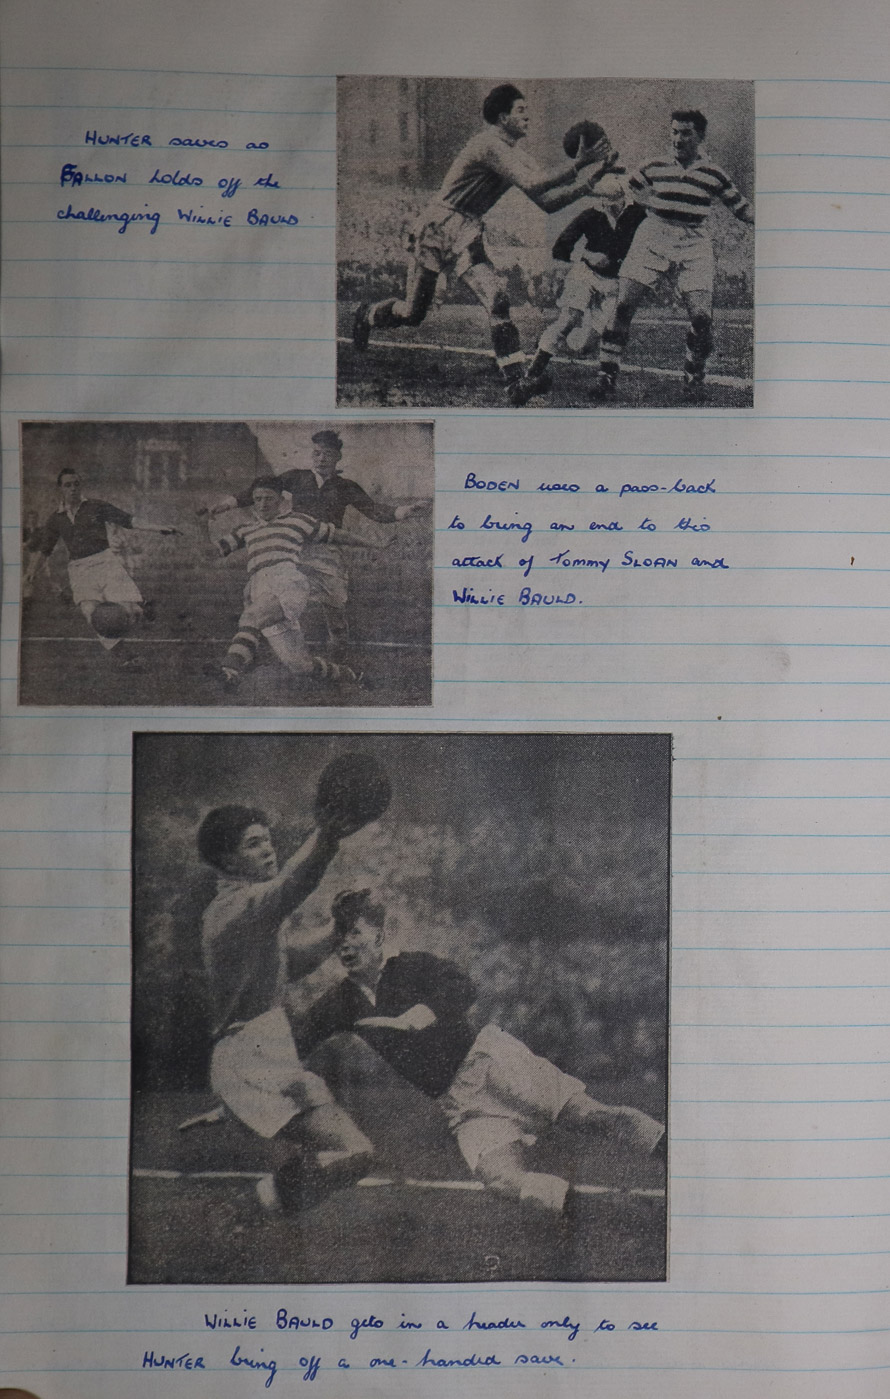 HUNTER saves as
FALLON holds off the
challenging WILLIE BAULD
BODEN uses a pass-back
to bring an end to this
attack of Tommy SLOAN and
WILLIE BAULD.
WILLIE BAULD gets in a header only to see
HUNTER bring off a one-handed save.